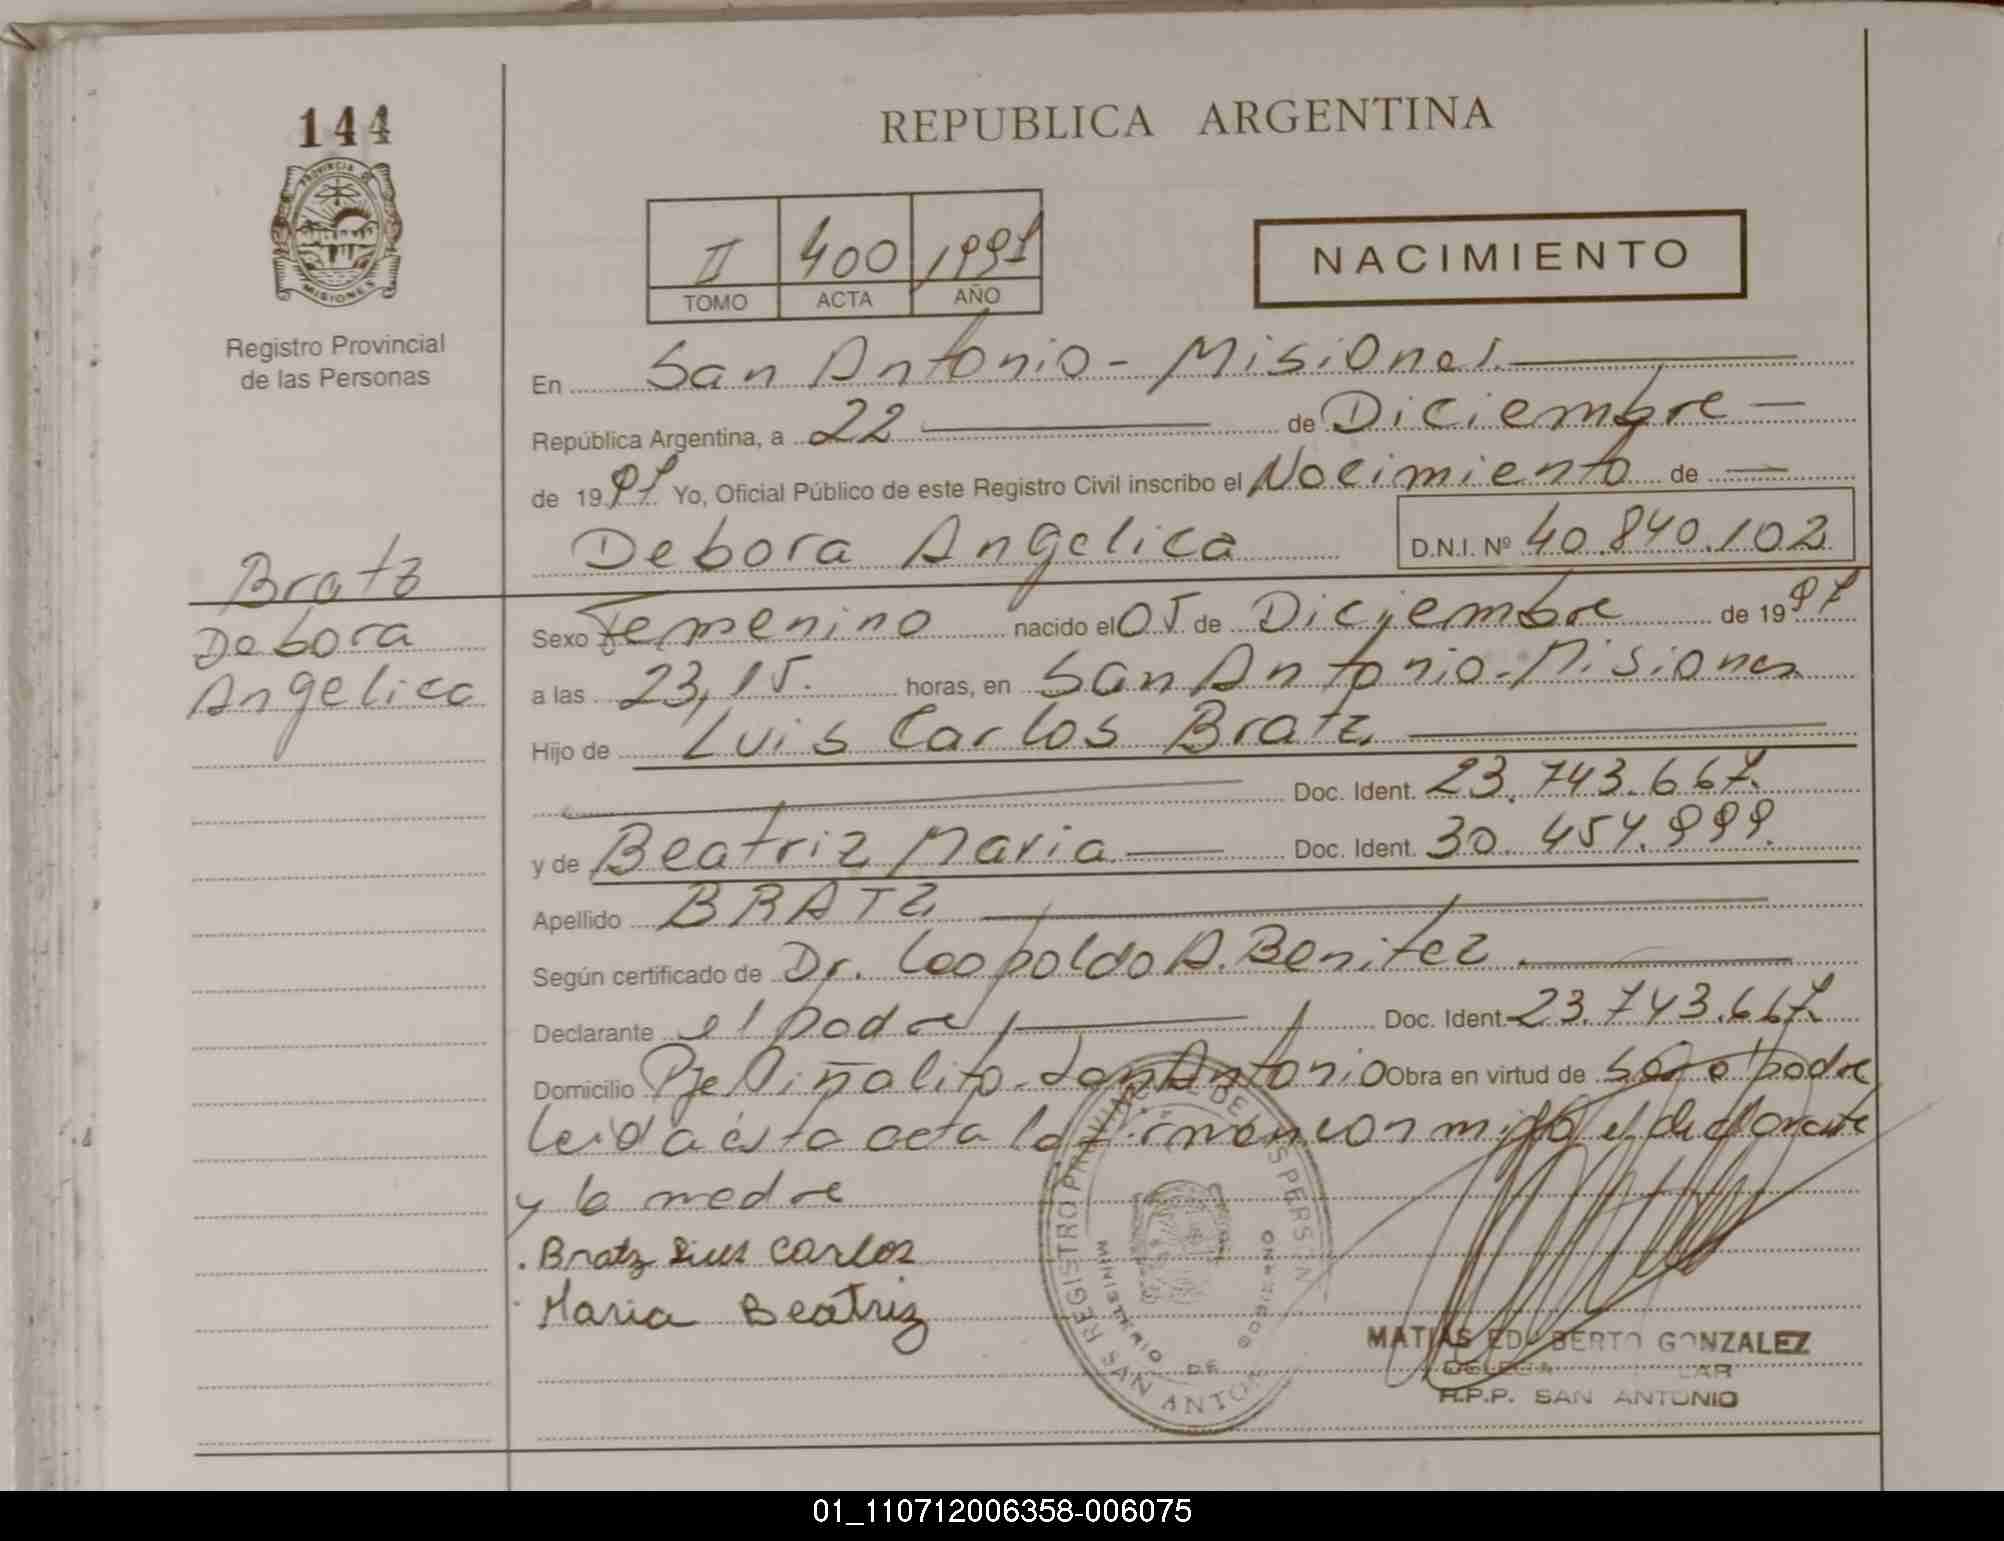 144
PROVINCIA DE
MISIONES
Registro Provincial
de las Personas
Bratz
Debora
Angelica
REPUBLICA ARGENTINA
II 400 1997
TOMO ACTA AÑO
NACIMIENTO
En San Antonio - Misiones
República Argentina, a 22 de Diciembre
de 1997 Yo, Oficial Público de este Registro Civil inscribo el Nacimiento de
Debora Angelica D.N.I. Nº 40.840.102
Sexo Femenino nacido el 05 de Diciembre de 1997
a las 23,15. horas, en San Antonio - Misiones
Hijo de Luis Carlos Bratz
Doc. Ident. 23.743.667.
y de Beatriz Maria Doc. Ident. 30.457.999.
Apellido BRATZ
Según certificado de Dr. Leopoldo A. Benitez.
Declarante el padre Doc. Ident. 23.743.667.
Domicilio Pje Piñalito - San Antonio Obra en virtud de ser el padre
leida esta acta la firman conmigo el declarante
y la madre
. Bratz Luis Carlos
Maria Beatriz
REGISTRO PROVINCIAL DE LAS PERSONAS
MINISTERIO DE GOBIERNO
SAN ANTONIO
MATIAS EDILBERTO GONZALEZ
R.P.P. SAN ANTONIO
01_110712006358-006075